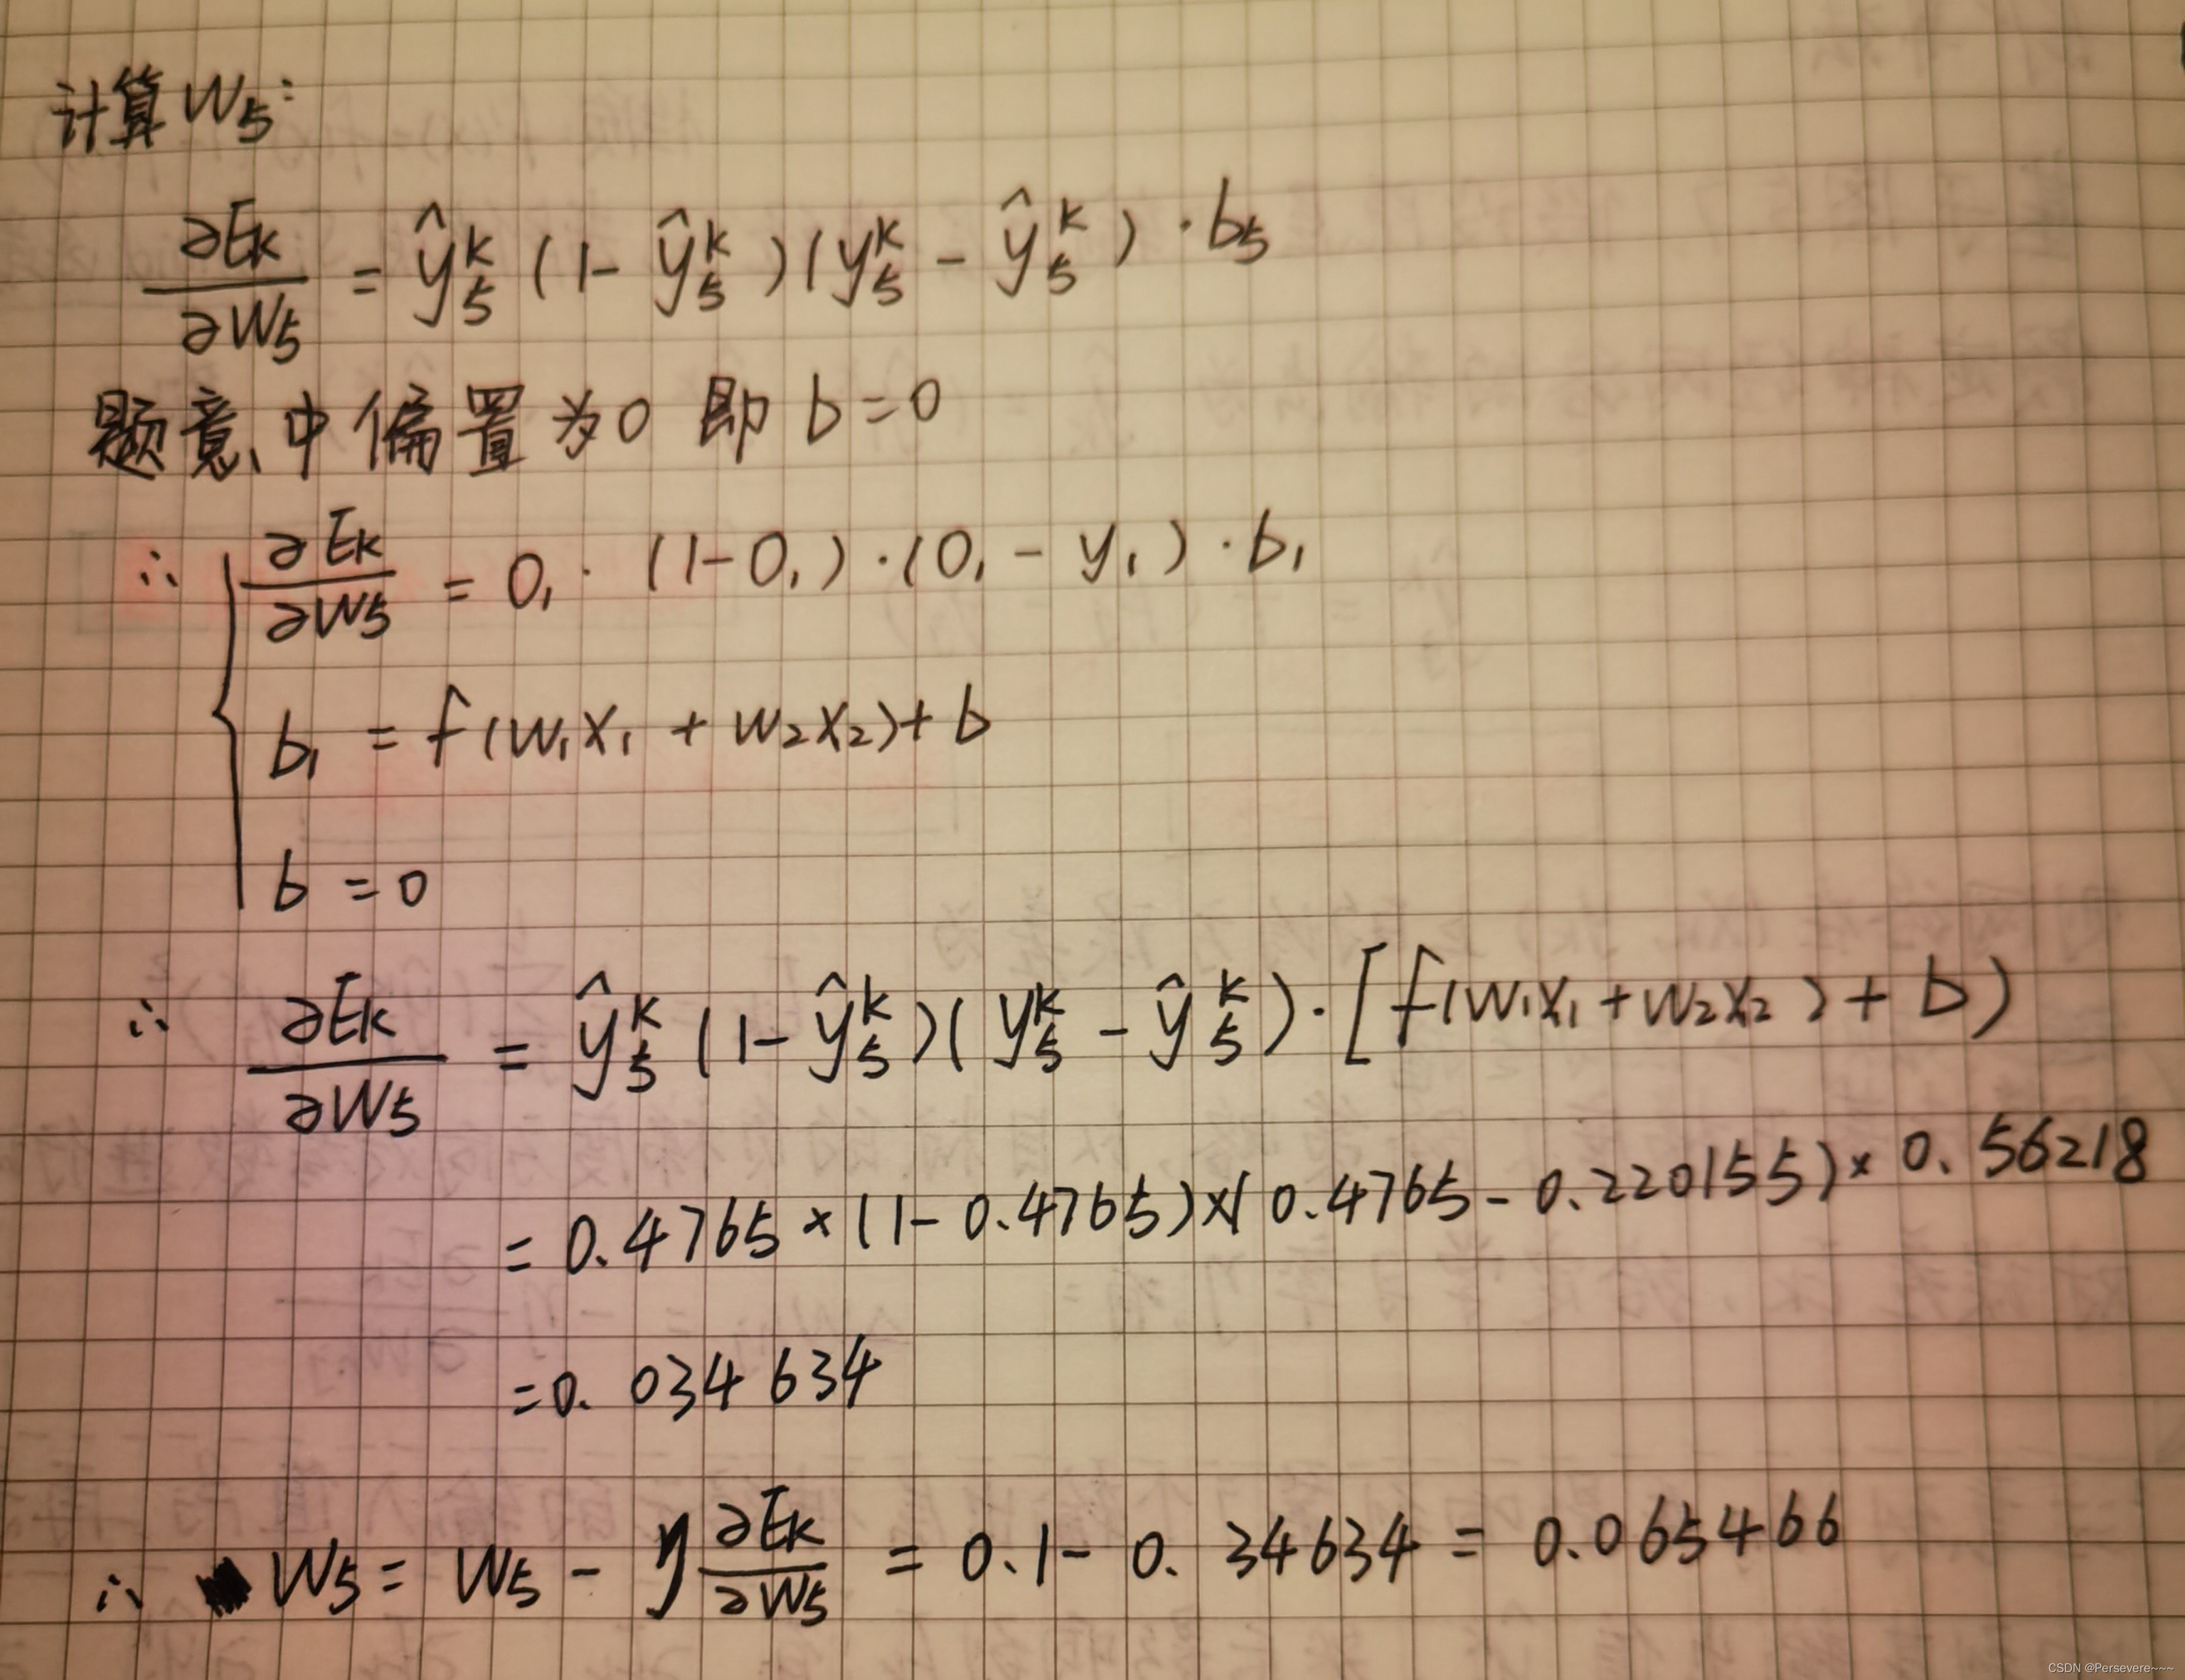 计算W₅:
∂Eₖ/∂W₅ = ŷ₅ᵏ(1-ŷ₅ᵏ)(y₅ᵏ-ŷ₅ᵏ)·b₅
题意中偏置为0 即 b=0
∴ { ∂Eₖ/∂W₅ = O₁·(1-O₁)·(O₁-y₁)·b₁
b₁ = f(W₁X₁+W₂X₂)+b
b=0
∴ ∂Eₖ/∂W₅ = ŷ₅ᵏ(1-ŷ₅ᵏ)(y₅ᵏ-ŷ₅ᵏ)·[f(W₁X₁+W₂X₂)+b)
= 0.4765×(1-0.4765)×(0.4765-0.220155)×0.56218
=0.034634
∴ W₅= W₅ - η ∂Eₖ/∂W₅ = 0.1-0.34634 = 0.065466
CSDN @Persevere~~~